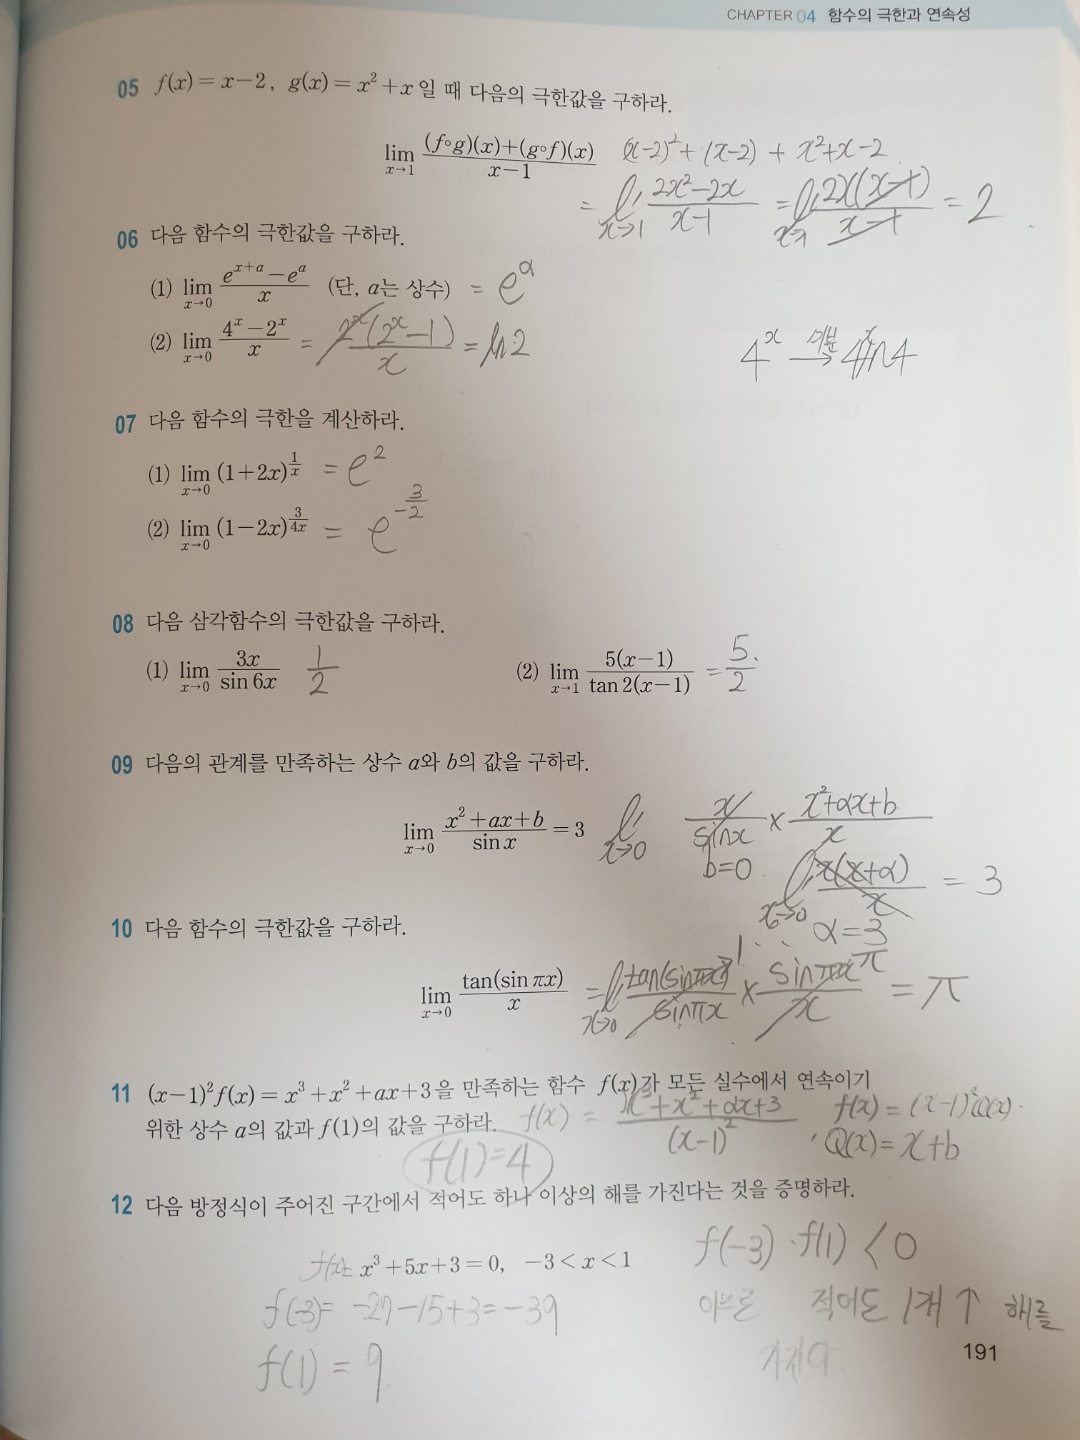 CHAPTER 04 함수의 극한과 연속성
05 f(x)=x-2, g(x)=x²+x일 때 다음의 극한값을 구하라.
lim_{x→1} ((f∘g)(x)+(g∘f)(x))/(x-1) (x-2)²+(x-2) + x²+x-2
= lim_{x→1} (2x²-2x)/(x-1) = lim_{x→1} 2x(x-1)/(x-1) = 2
06 다음 함수의 극한값을 구하라.
(1) lim_{x→0} (e^{x+a}-e^a)/x (단, a는 상수) = e^a
(2) lim_{x→0} (4^x-2^x)/x = 2^x(2^x-1)/x = ln2 4^x 미분→ 4^x ln4
07 다음 함수의 극한을 계산하라.
(1) lim_{x→0} (1+2x)^{1/x} = e²
(2) lim_{x→0} (1-2x)^{3/4x} = e^{-3/2}
08 다음 삼각함수의 극한값을 구하라.
(1) lim_{x→0} 3x/sin 6x 1/2 (2) lim_{x→1} 5(x-1)/tan 2(x-1) = 5/2
09 다음의 관계를 만족하는 상수 a와 b의 값을 구하라.
lim_{x→0} (x²+ax+b)/sin x = 3 lim_{x→0} x/sinx × (x²+ax+b)/x
b=0 lim_{x→0} x(x+a)/x = 3
a=3
10 다음 함수의 극한값을 구하라.
lim_{x→0} tan(sin πx)/x = lim_{x→0} tan(sinπx)/sinπx × sinπx/x = π
11 (x-1)²f(x)=x³+x²+ax+3을 만족하는 함수 f(x)가 모든 실수에서 연속이기
위한 상수 a의 값과 f(1)의 값을 구하라. f(x) = (x³+x²+ax+3)/(x-1)² f(x)=(x-1)²Q(x).
f(1)=4 Q(x)=x+b
12 다음 방정식이 주어진 구간에서 적어도 하나 이상의 해를 가진다는 것을 증명하라.
f(x)= x³+5x+3=0, -3<x<1 f(-3)·f(1)<0
f(-3)= -27-15+3=-39 이므로 적어도 1개↑ 해를
f(1)=9 가진다.
191